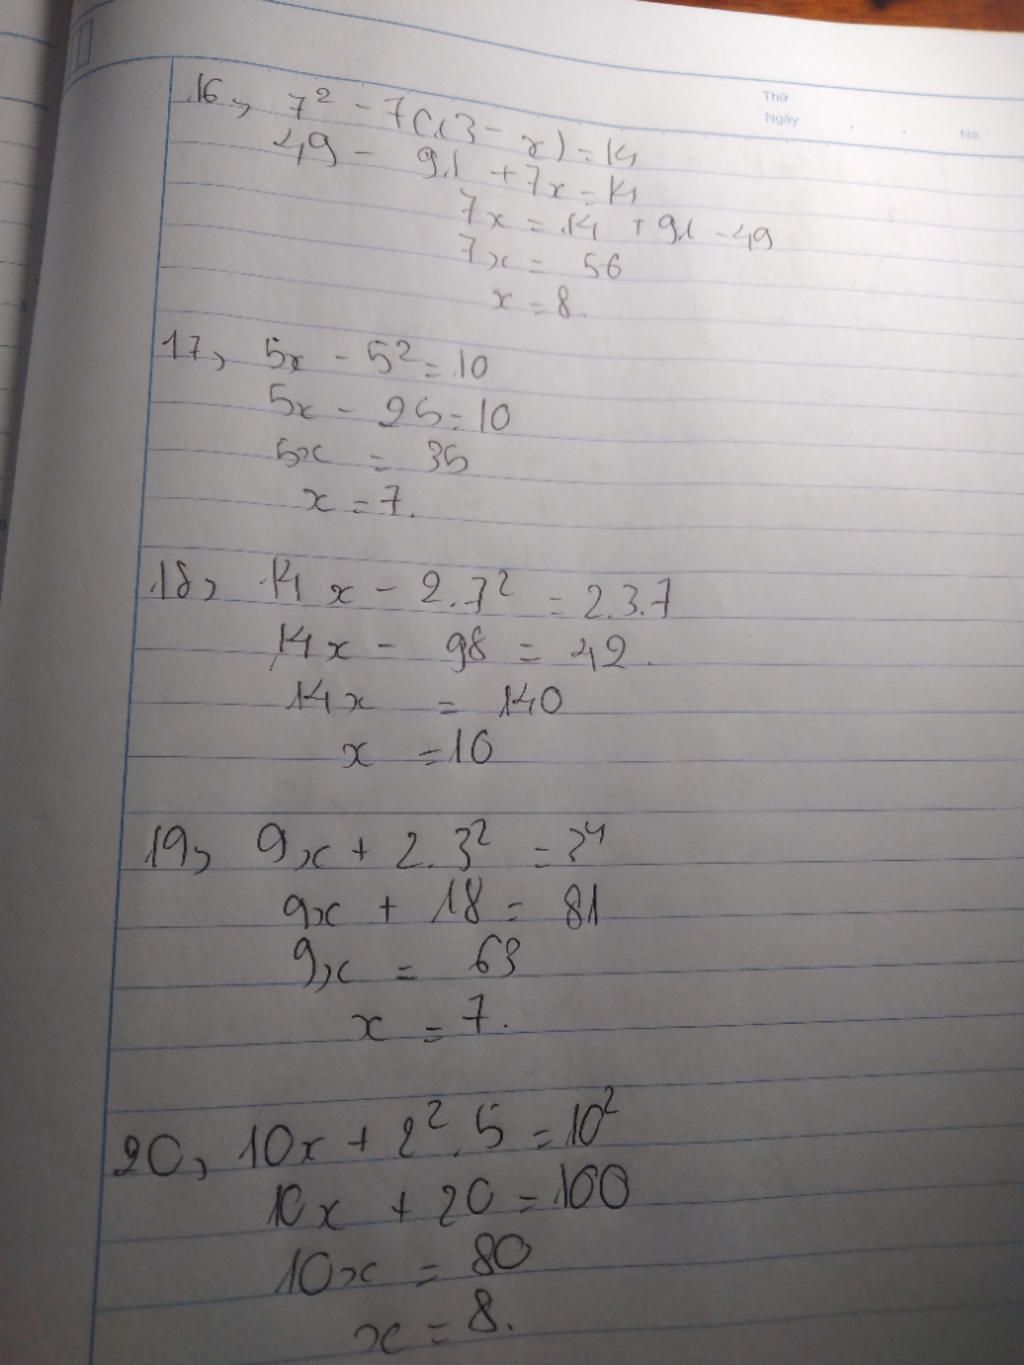 Thứ
Ngày
No.
16, 7² - 7(13 - x) = 14
49 - 91 + 7x = 14
7x = 14 + 91 - 49
7x = 56
x = 8.
17, 5x - 5² = 10
5x - 25 = 10
5x = 35
x = 7.
18, 14x - 2.7² = 2.3.7
14x - 98 = 42.
14x = 140
x = 10
19, 9x + 2.3² = 3⁴
9x + 18 = 81
9x = 63
x = 7.
20, 10x + 2².5 = 10²
10x + 20 = 100
10x = 80
x = 8.